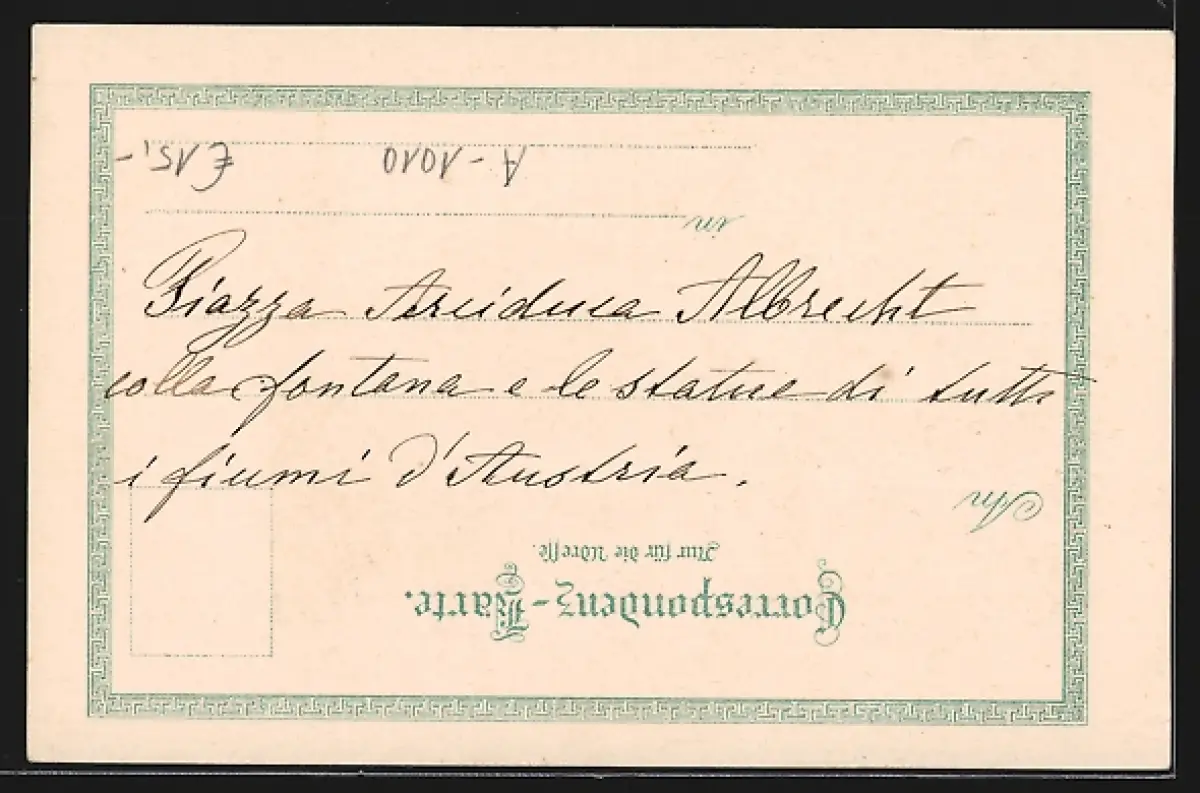 € 15,-
A-1010
in
Piazza Arciduca Albrecht
colla fontana e le statue di tutti
i fiumi d'Austria.
An
Nur für die Adresse.
Correspondenz-Karte.